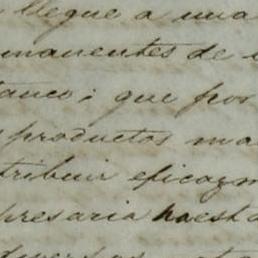 llegue a una
manentes de
tanco; que por
productos ma
tribuir eficazm
presaria haesta